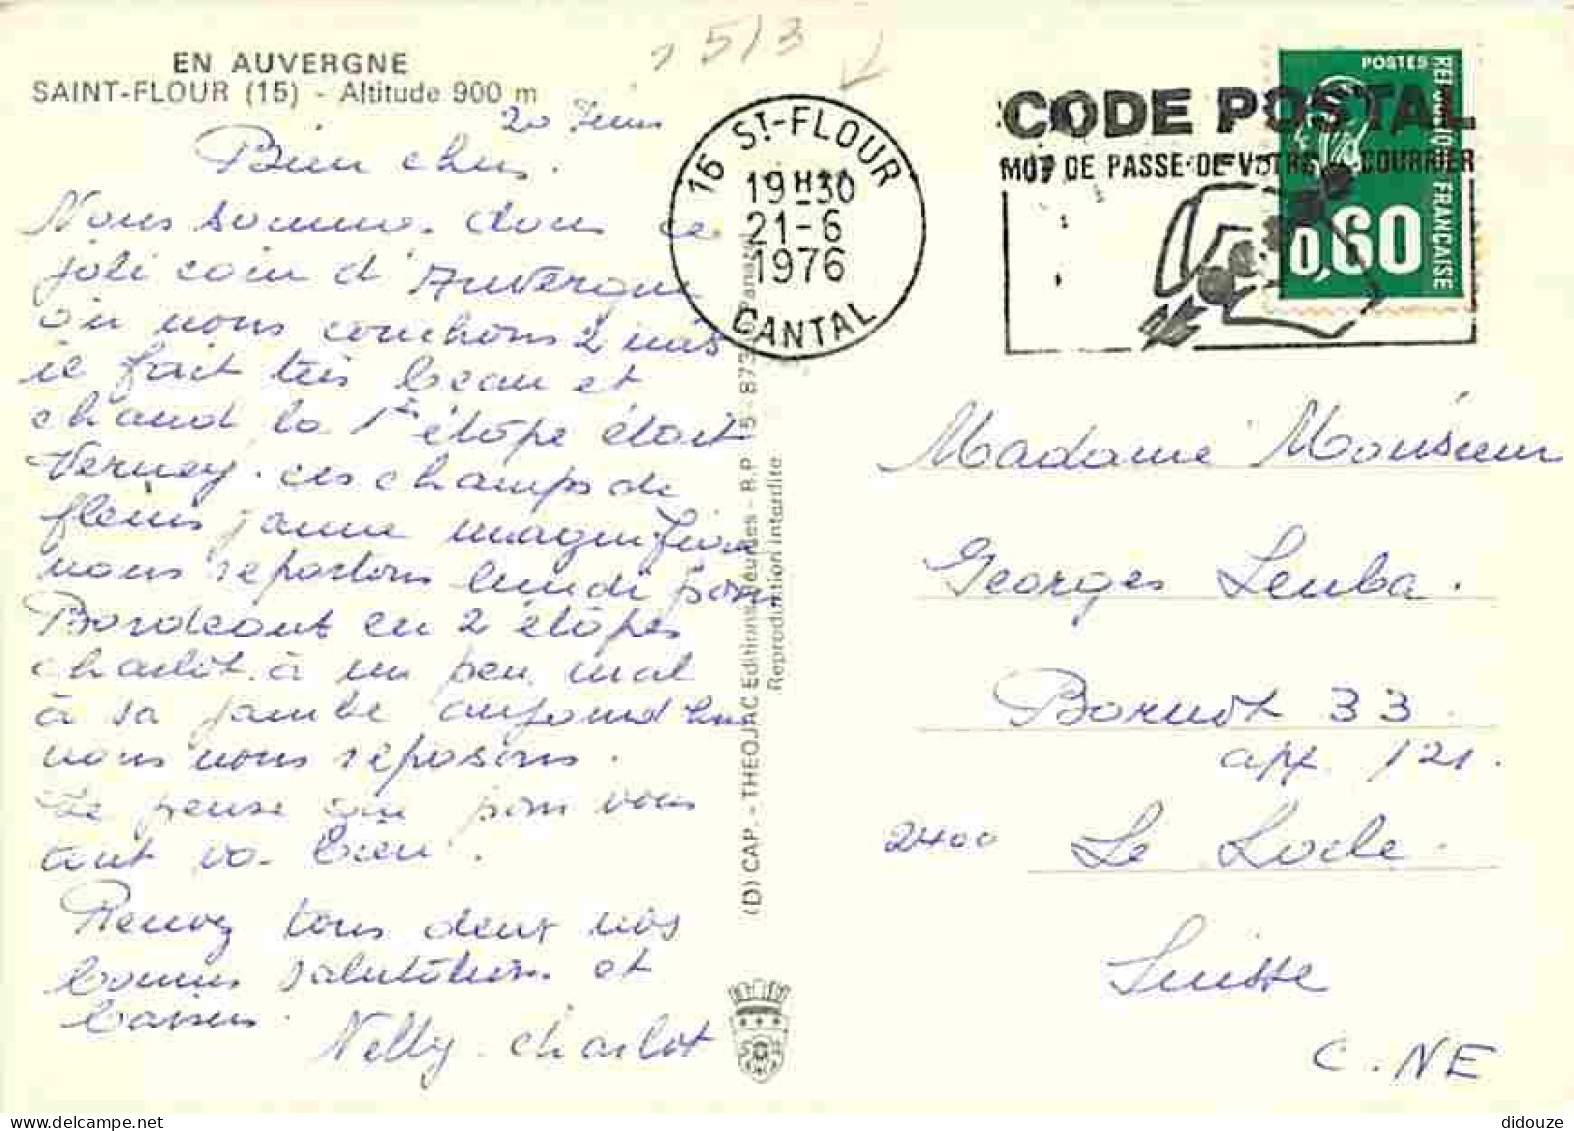 1 5/3
EN AUVERGNE
SAINT-FLOUR (15) - Altitude 900 m
20 Juin
Bien chers.
Nous sommes dans ce
joli coin d'Auvergne
où nous couchons 2 nuis
il fait très beau et
chaud la 1re étape était
Verney. ces champs de
fleurs jaune magnifique
nous repartons lundi pour
Bordeaux en 2 étapes
charlot à un peu mal
à sa jambe aujourd'hui
nous nous reposons.
Je pense que pour vous
tout va bien.
Recevez tous deux nos
bonnes salutations et
baisers.
Nelly. charlot
(D) CAP. - THEOJAC Editions - R.P. 5 - 873 Panazol
Reproduction interdite
15 ST-FLOUR
19 H 30
21-6
1976
CANTAL
CODE POSTAL
MOT DE PASSE DE VOTRE COURRIER
POSTES
REPUBLIQUE FRANÇAISE
0,60
Madame Monsieur
Georges Leuba.
Bournot 33.
app. 121.
2400 Le Locle.
Suisse
C. NE
didouze